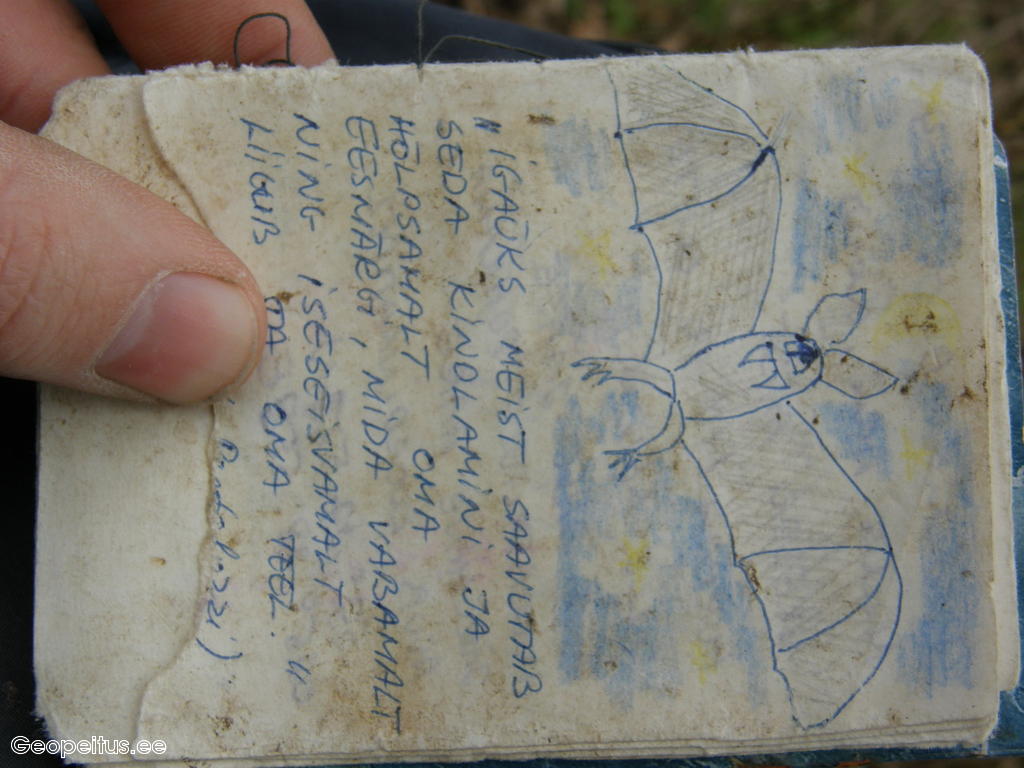 "IGAÜKS MEIST SAAVUTAB
SEDA KINDLAMINI JA
HÕLPSAMALT OMA
EESMÄRGI, MIDA VABAMALT
NING ISESEISVAMALT
LIIGUB TA OMA TEEL."
Geopeitus.ee